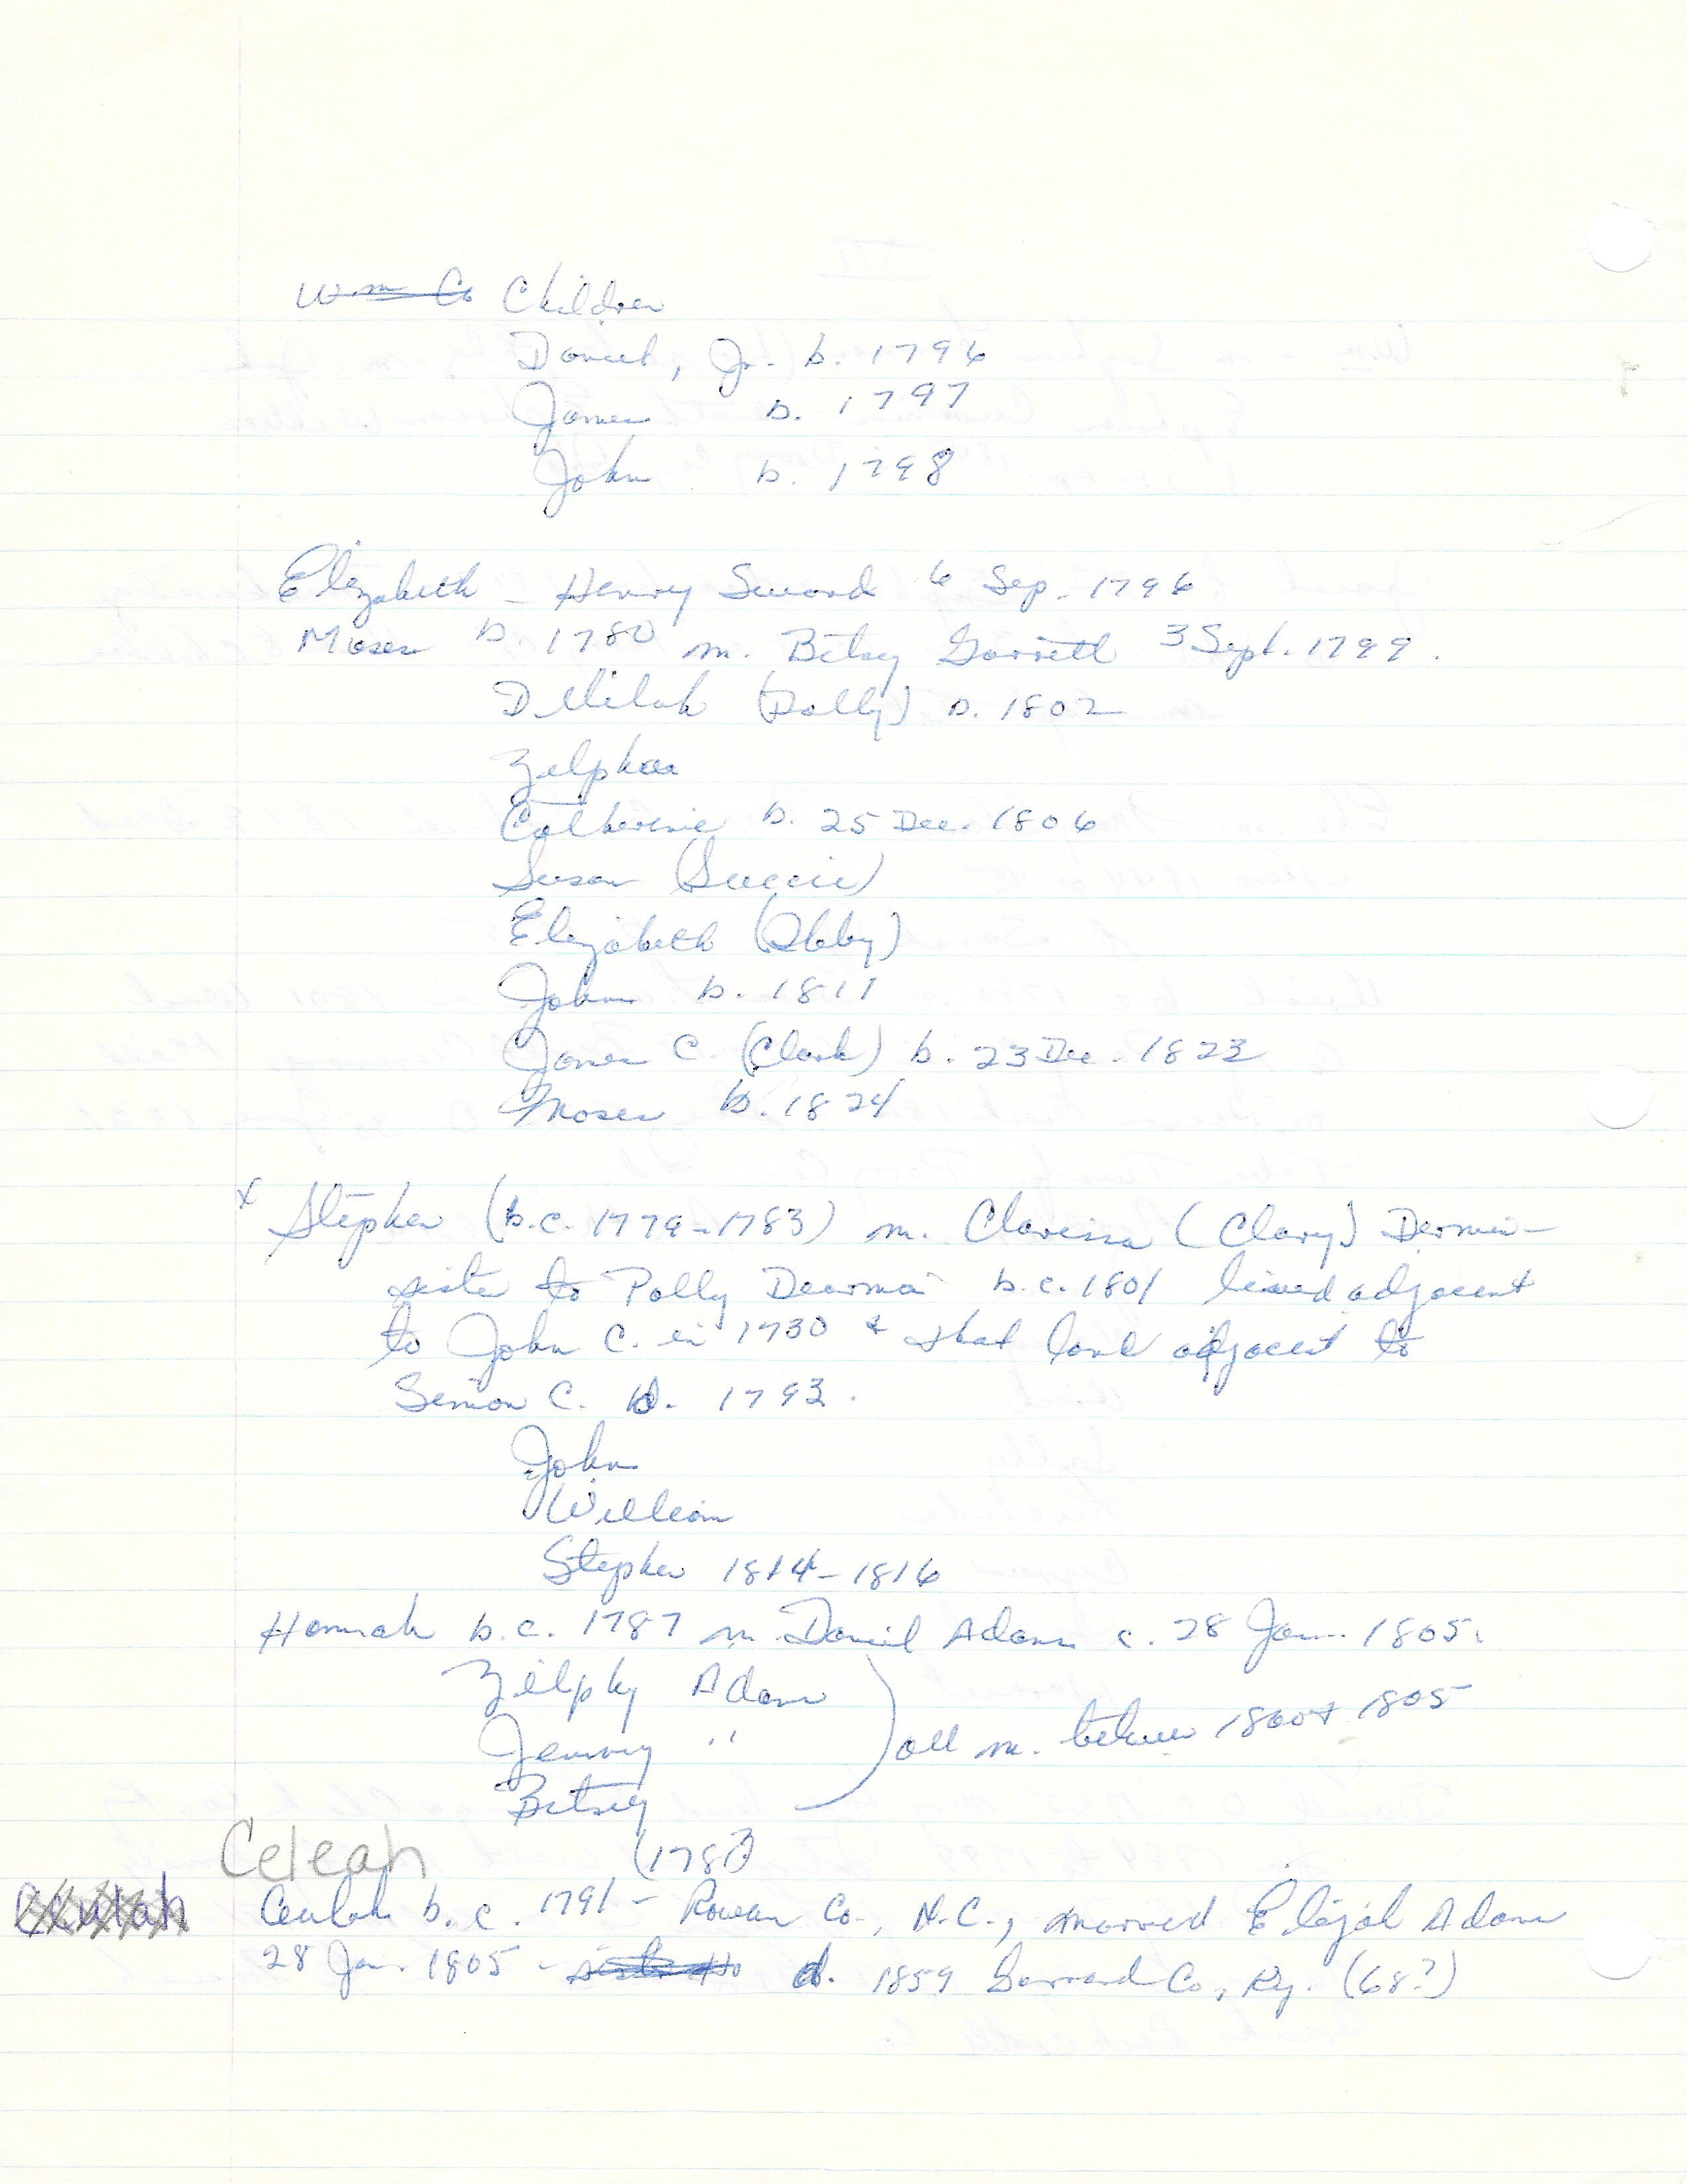 Wm Co Children
Daniel, Jr. b. 1796
James b. 1797
John b. 1798
Elizabeth - Henry Sword 6 Sep. 1796
Moses b. 1780 m. Betsy Garrett 3 Sept. 1799.
Delilah (Dolly) b. 1802
Zelpha
Catherine b. 25 Dec. 1806
Susan (Succie)
Elizabeth (Ibby)
John b. 1811
James C. (Clark) b. 23 Dec. 1823
Moses b. 1824
x Stephen (b.c. 1779-1783) m. Clarissa (Clary) Dermin -
sister to Polly Dearman b.c. 1801 lived adjacent
to John C. in 1730 & that land adjacent to
Simon C. b. 1793.
John
William
Stephen 1814-1816
Hannah b.c. 1787 m. Daniel Adams c. 28 Jan. 1805.
Zilphy Adams
Jenny "
Betsey
all m. between 1800 & 1805
Celeah (1783
Ceulah Ceulah b.c. 1791 - Rowan Co., N.C., married Elijah Adams
28 Jan. 1805 - sister to d. 1859 Garrard Co., Ky. (68?)